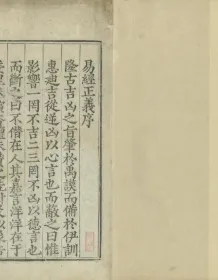 易經正義序
隆古吉凶之旨肇於禹謨而備於伊訓
惠迪吉從逆凶以心言也而蔽之曰惟
影響一罔不吉二三罔不凶以德言也
而斷之曰不僭在人其嘉言洋洋在于